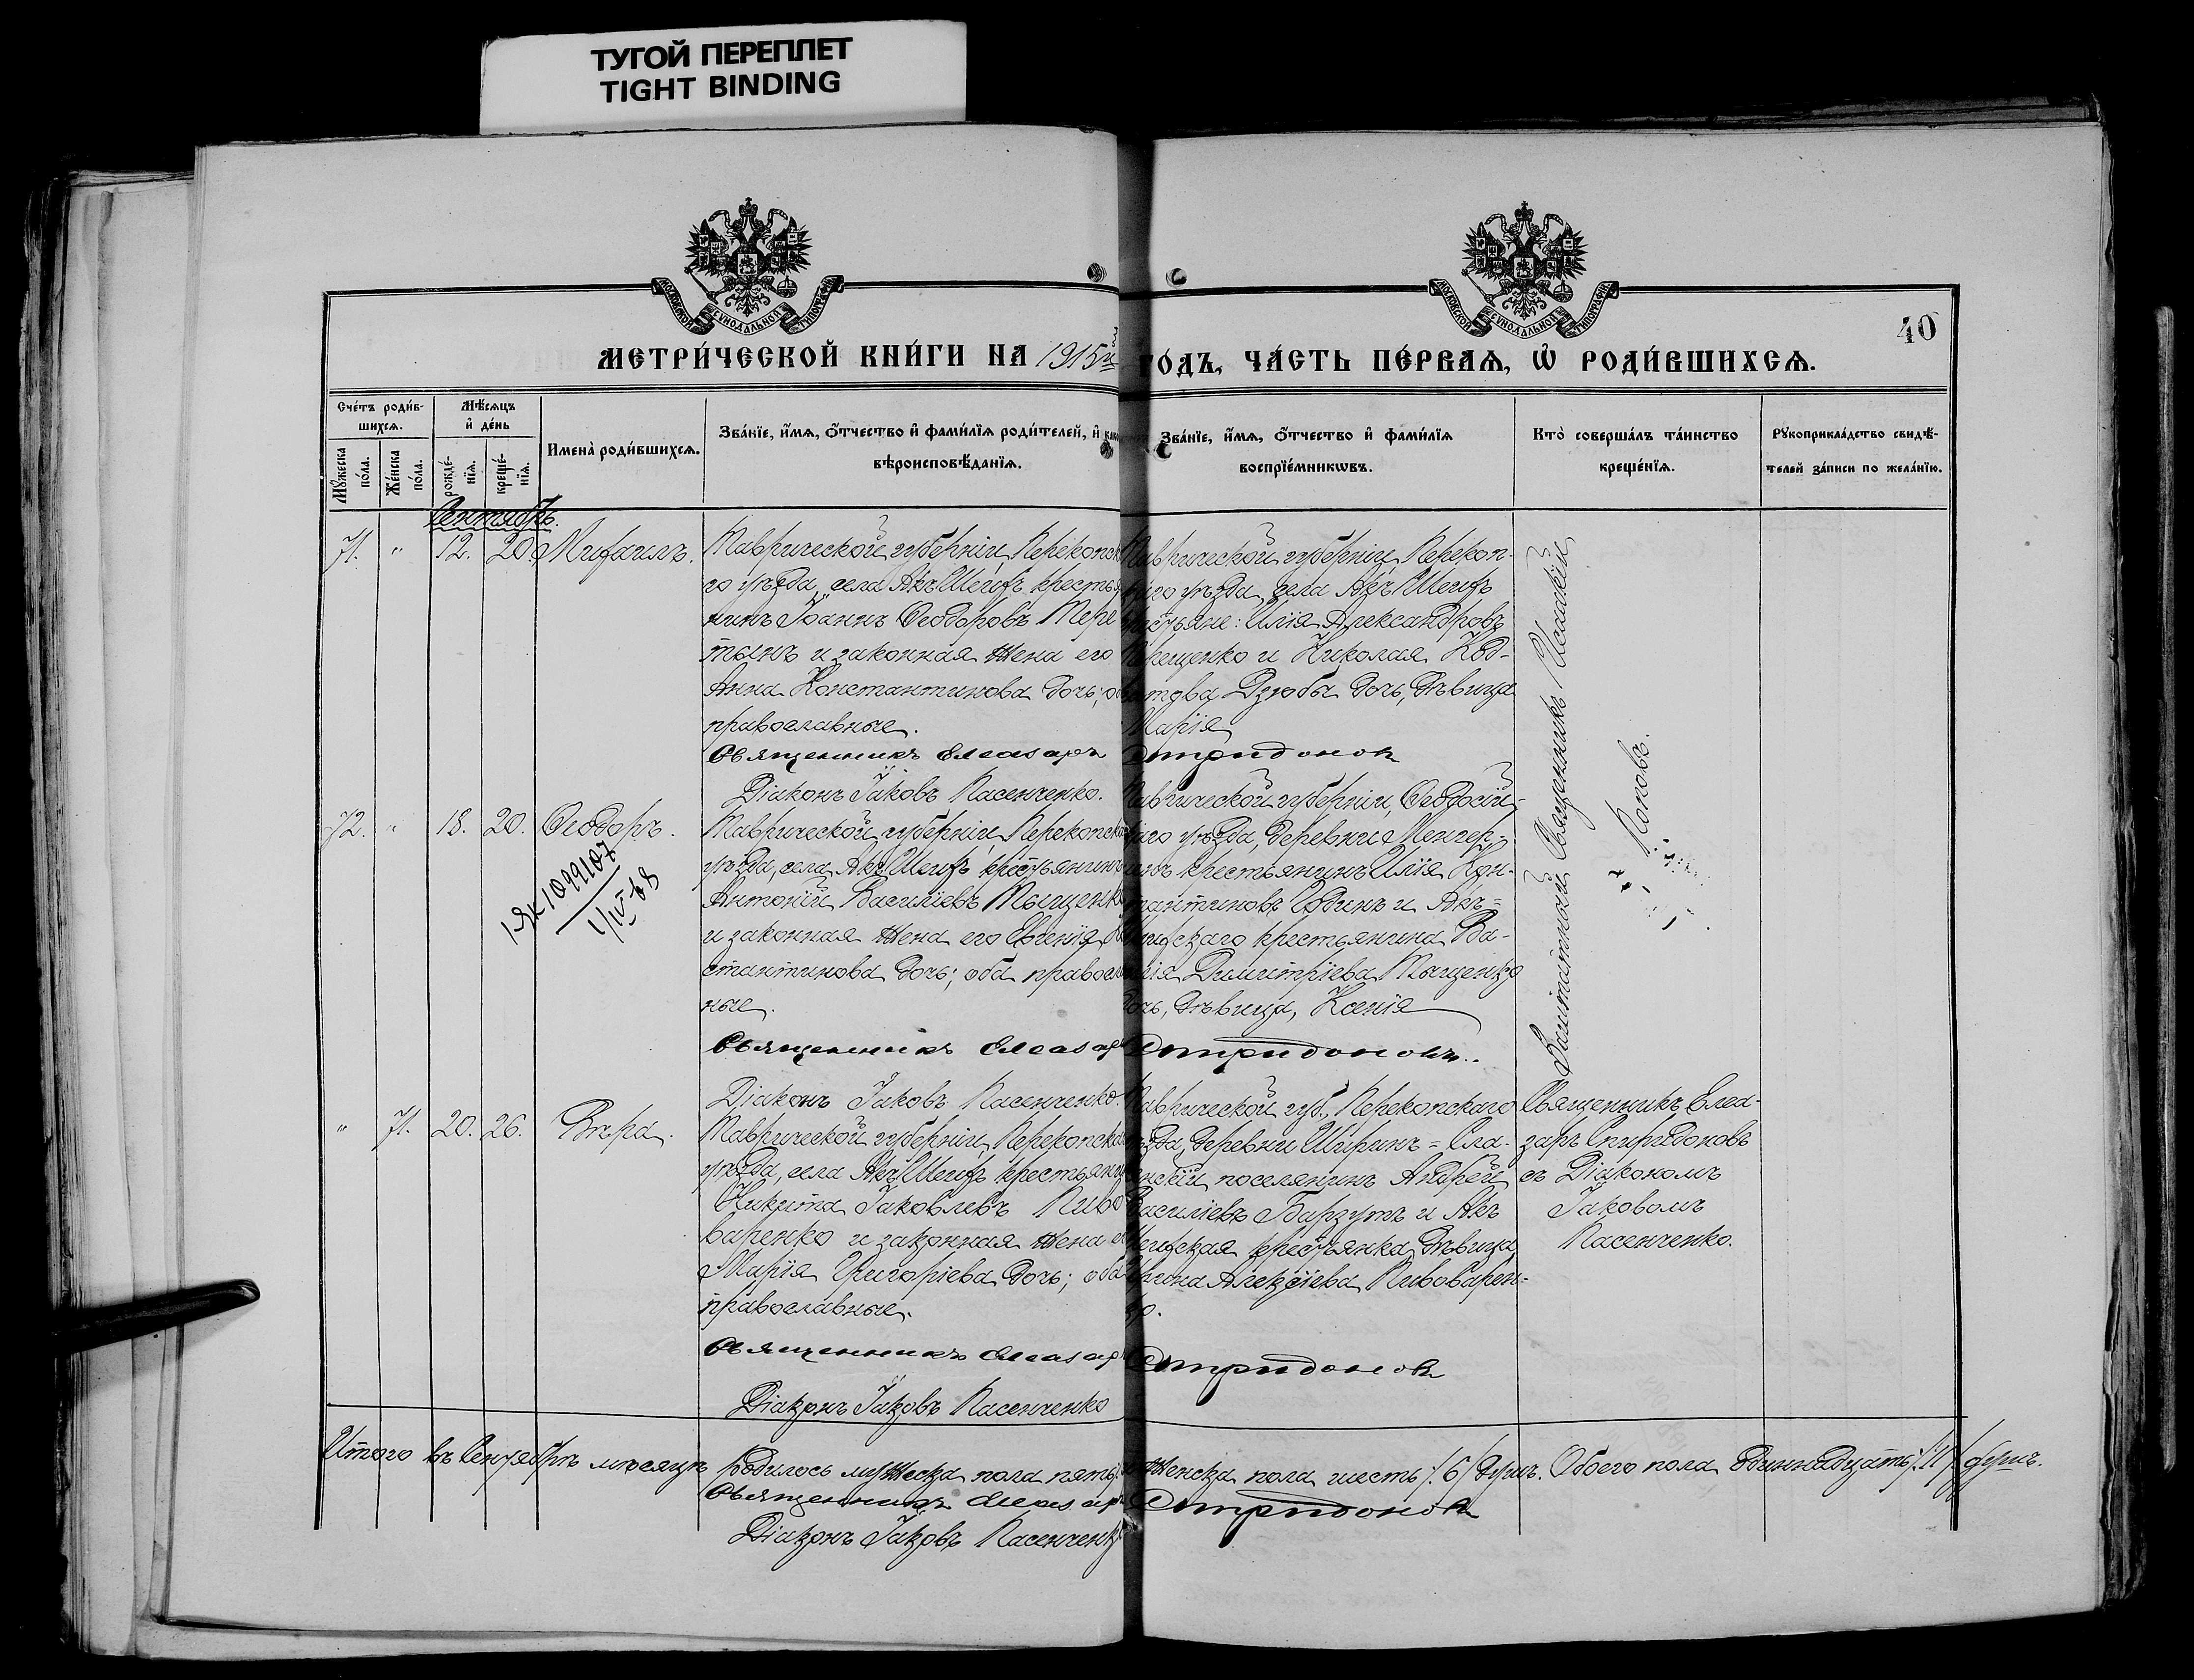 ТУГОЙ ПЕРЕПЛЕТ
TIGHT BINDING
МОСКОВСКОЙ СѴНОДАЛЬНОЙ ТИПОГРАФІИ
МОСКОВСКОЙ СѴНОДАЛЬНОЙ ТИПОГРАФІИ
40
МЕТРИ́ЧЕСКОЙ КНИ́ГИ НА 1915й ГО́ДЪ, ЧА́СТЬ ПЕ́РВАѦ, Ѿ РОДИ́ВШИХСѦ.
Сче́тъ роди́в-
шихсѧ.
Мꙋжеска по́ла.
Же́нска по́ла.
Мѣ́сѧцъ
и҆ де́нь
рожде́-нїѧ.
креще́-нїѧ.
Имена̀ роди́вшихсѧ.
Зва́нїе, и҆́мѧ, о҆́тчество и҆ фами́лїѧ роди́телей, и҆
вѣроисповѣ́данїѧ.
Зва́нїе, и҆́мѧ, о҆́тчество и҆ фами́лїѧ
воспрїе́мникѡвъ.
Кто̀ соверша́лъ та́инство
креще́нїѧ.
Рꙋкоприкла́дство свидѣ́-
телей за́писи по жела́нїю.
Сентябрь.
71. " 12. 20. Михаилъ.
Таврической губерніи, Перекопск
го уѣзда, села Акъ Шеихъ кресть
нинъ Іоаннъ Ѳеодоровъ Тере
тынъ и законная жена его
Анна Константинова дочь; о
православные.
Священникъ Елеазаръ Спиридонов
Діаконъ Іаковъ Пасенченко.
Таврической губерніи, Перекоп-
скаго уѣзда, села Акъ Шеихъ
крестьяне: Илія Александровъ
Терещенко и Николая
Дзюбы дочь, дѣвица
Марія
Заштатный Священникъ Исаакій
Поповъ.
72. " 18. 20. Ѳеодоръ.
1099107
1/IV-68
Таврической губерніи, Перекопска
уѣзда, села Акъ Шеихъ крестьянинъ
Антоній Василіевъ Тыщенко
и законная жена его Евгенія К
стантинова дочь; оба правосл
ные.
Священникъ Елеазаръ Спиридоновъ.
Діаконъ Іаковъ Пасенченко.
Таврической губерніи, Ѳеодосій-
скаго уѣзда, деревни
крестьянинъ Илія Кон-
стантиновъ и Акъ=
Шеихскаго крестьянина Ва-
силія Димитріева Тыщенко
дочь, дѣвица, Ксенія
" 71. 20. 26. Вѣра.
Таврической губерніи, Перекопска
уѣзда, села Акъ Шеихъ крестьянин
Никита Іаковлевъ Пиво
варенко и законная жена е
Марія Григоріева дочь; оба
православные.
Священникъ Елеазаръ Спиридонов
Діаконъ Іаковъ Пасенченко
Таврической губ., Перекопскаго
уѣзда, деревни Ширинъ=
поселянинъ Андрей
Василіевъ и Акъ
Шеихская крестьянка, дѣвица
Алексіева Пивоварен-
ко.
Священникъ Елеа-
заръ Спиридоновъ
съ Діакономъ
Іаковомъ
Пасенченко.
Итого въ Сентябрѣ мѣсяцѣ родилось мужеска пола пять женска пола шесть /6/ душъ. Обоего пола одиннадцать /11/ душъ.
Священникъ Елеазаръ Спиридонов
Діаконъ Іаковъ Пасенченко